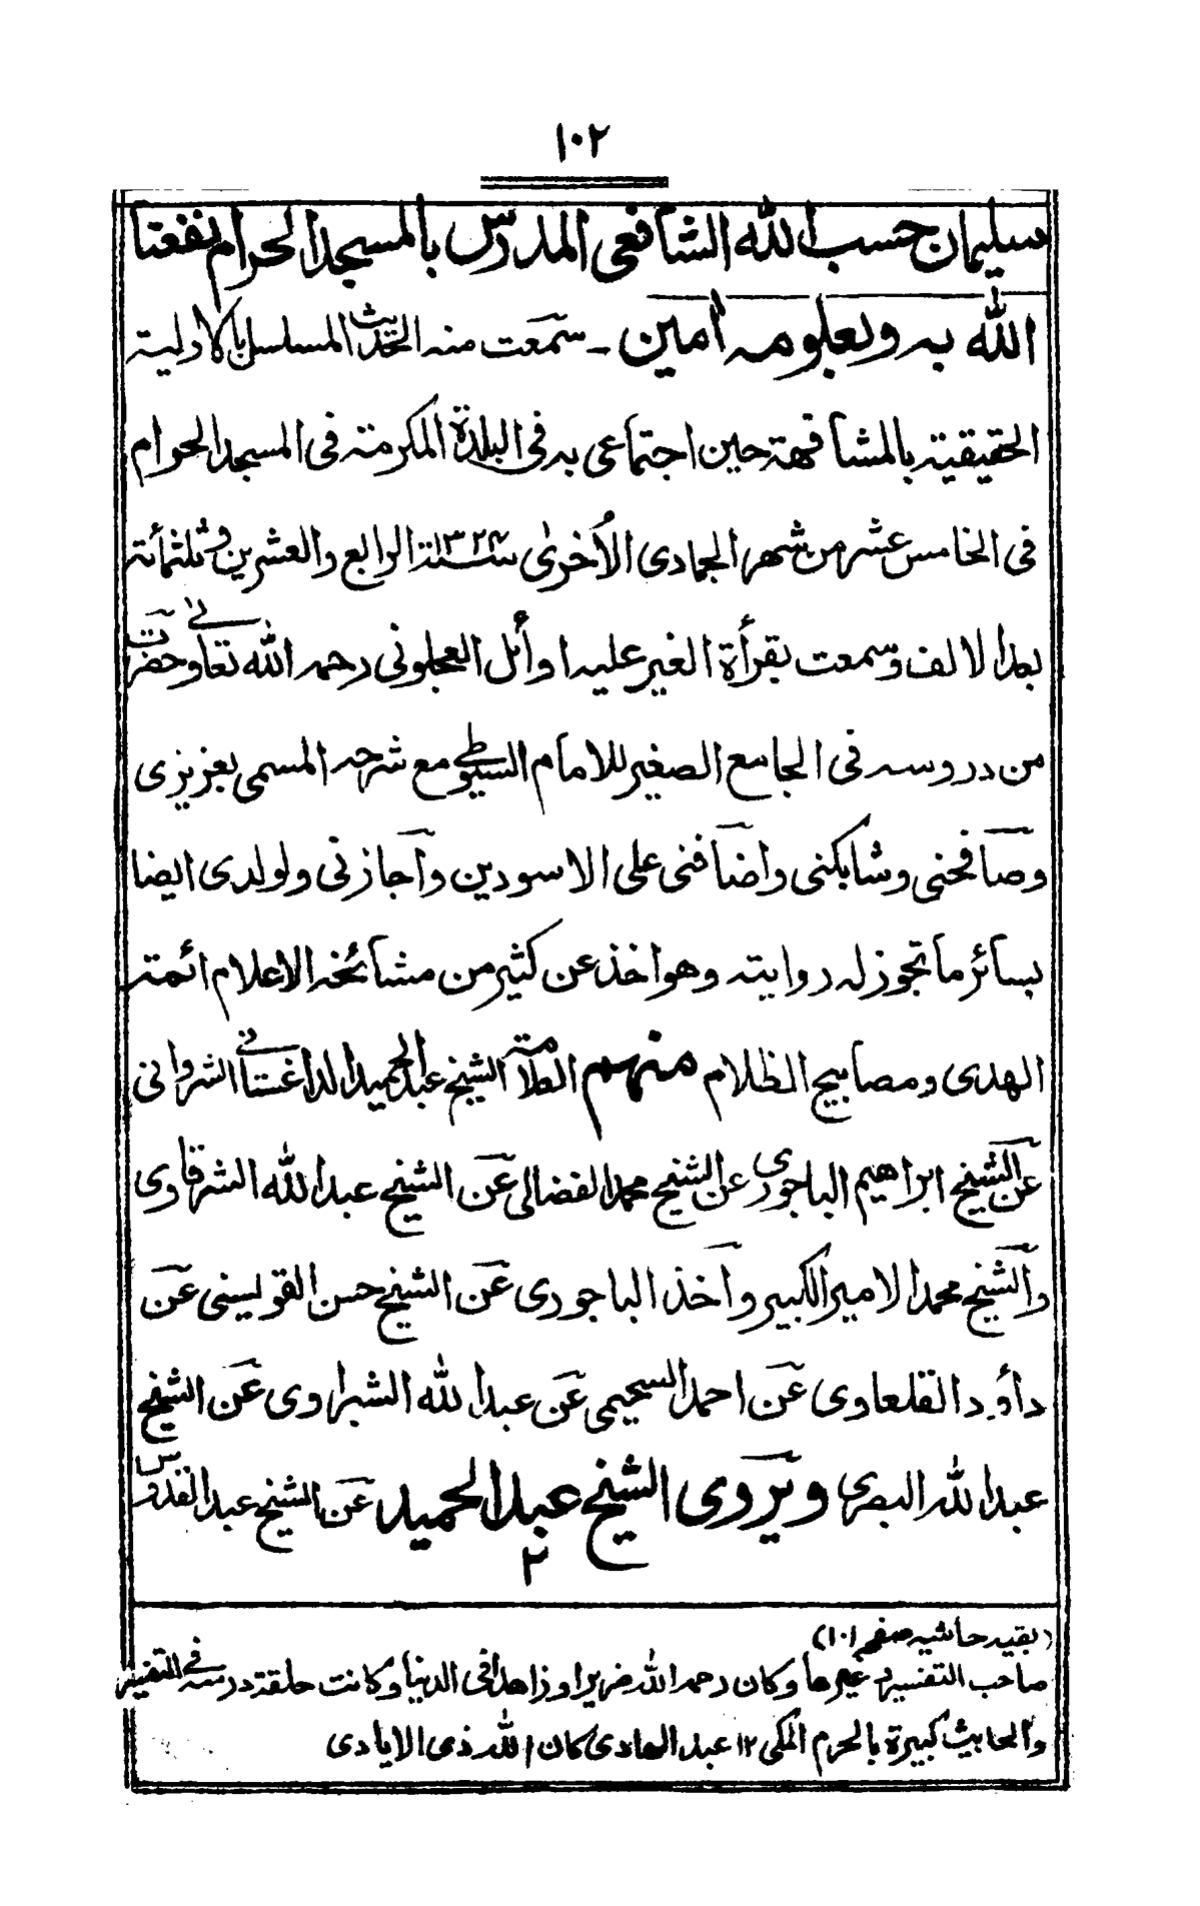 ١٠٢
سليمان حسب الله الشافعى المدرس بالمسجد الحرام نفعنا
الله به وبعلومه امين ــ سمعت منه الحديث المسلسل بالاولية
الحقيقية بالمشافهة حين اجتماعى به فى البلدة المكرمة فى المسجد الحرام
فى الخامس عشر من شهر الجمادى الأخرى سنة ١٣٢٤ الرابع والعشرين وثلثمائة
بعد الالف وسمعت بقرأة الغير عليه اوائل العجلونى رحمه الله تعالى وحضرت
من دروسه فى الجامع الصغير للامام السيوطى مع شرحه المسمى بعزيزى
وصافحنى وشابكنى واضافنى على الاسودين واجازنى ولولدى ايضا
بسائر ما تجوز له روايته وهو اخذ عن كثير من مشائخه الاعلام ائمة
الهدى ومصابيح الظلام منهم العلامة الشيخ عبد الحميد الداغستانى الشروانى
عن الشيخ ابراهيم الباجورى عن الشيخ محمد الفضالى عن الشيخ عبد الله الشرقاوى
والشيخ محمد الامير الكبير واخذ الباجورى عن الشيخ حسن القويسنى عن
داؤد القلعاوى عن احمد السحيمى عن عبد الله الشبراوى عن الشيخ
عبد الله البصرى ويروى الشيخ عبد الحميد عن الشيخ عبد القدوس
٢
(بقيه حاشيه صفحه ١٠١)
صاحب التفسير وغيرها وكان رحمه الله ضريرا وزاهدا فى الدنيا وكانت حلقة درسه فى التفسير
والحديث كبيرة بالحرم المكى ١٢ عبد الهادى كان الله ذى الايادى